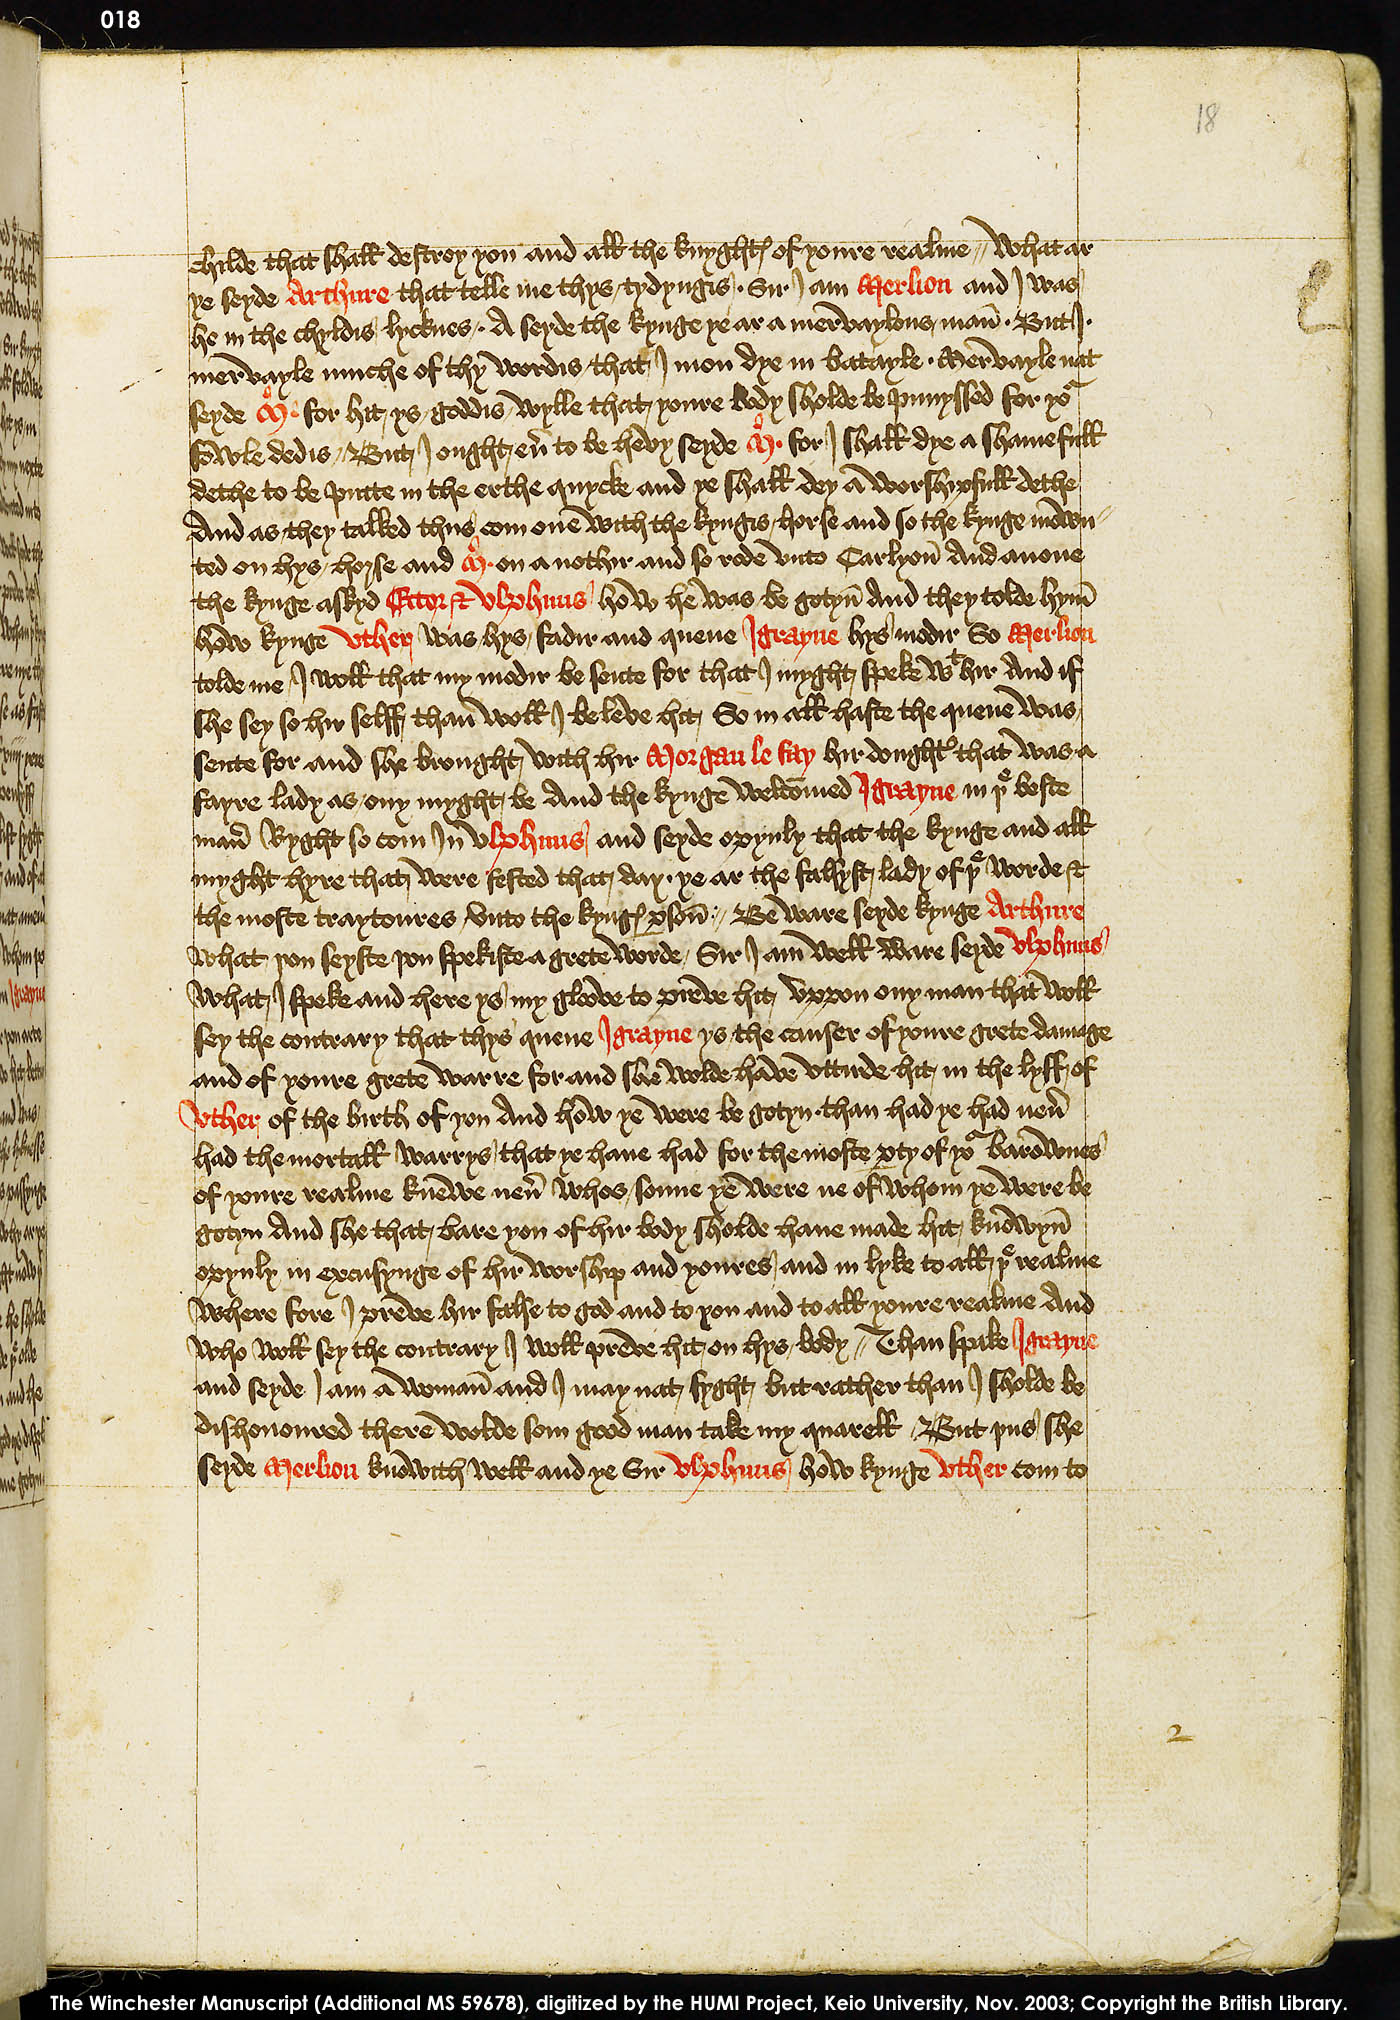 018
18
childe that shall destroy you and all the knyghtꝭ of youre realme // What ar
ye seyde Arthure that telle me thys tydyngis · Sir I am Merlion and I was
he in the chyldis lycknes · A seyde the kynge ye ar a mervaylous man̄ · But I ·
mervayle muche of thy wordis that I mou dye in batayle · Mervayle nat
seyde Mͦ · for hit ys goddis wylle that youre body sholde be punyssed for yoᷣ
fowle dedis / But I ought eū to be hevy seyde Mͦ · for I shall dye a shamefull
dethe to be putte in the erthe quycke and ye shall dey a worshypfull dethe
And as they talked thus com one with the kyngis horse and so the kynge mown〃
ted on hys horse and Mͦ · on a nothir and so rode vnto Carlyon̄ And anone
the kynge askyd Ector & Vlphuns how he was be gotyn̄ And they tolde hym̄
how kynge Vther was hys fadir and quene Igrayne hys modir So Merlion
tolde me / I woll that my modir be sente for that I myght speke wᵗ hir And if
she sey so hir selff than̄ woll I beleve hit So in all haste the quene was
sente for and she brought with hir Morgan le fay hir doughtʳ that was a
fayre lady as ony myght be And the kynge welcōmed Igrayne in þͤ beste
man̄ Ryght so com In̄ Vlphuns and seyde opynly that the kynge and all
myght hyre that were fested that day · ye ar the falsyst lady of þͤ worlde &
the moste traytoures vnto the kyngꝭ ꝑson̄ · // Beware seyde kynge Arthure
what þou seyste þou spekiste a grete worde / Sir I am well ware seyde Vlphuns
What I speke and here ys my glove to preve hit vppon ony man that woll
sey the contrary that thys quene Igrayne ys the causer of youre grete damage
and of youre grete warre for and she wolde have vttirde hit in the lyff of
Vther of the birth of you And how ye were be gotyn · than had ye had neū
had the mortall warrys that ye have had for the moste ꝑty of yoᷣ barownes
of youre realme knewe neū whos sonne ye were ne of whom ye were be
gotyn And she that bare you of hir body sholde have made hit knowyn̄
opynly in excusynge of hir worship and youres and in lyke to all þͤ realme
where fore I preve hir false to god and to you and to all youre realme And
who woll sey the contrary I woll preve hit on hys body // Than spake Igrayne
and seyde I am a woman̄ and I may nat fyght but rather than I sholde be
dishonoured there wolde som good man take my quarell / But þus she
seyde Merlion knowith well and ye Sir Vlphuns how kynge Vther com to
2
The Winchester Manuscript (Additional MS 59678), digitized by the HUMI Project, Keio University, Nov. 2003; Copyright the British Library.